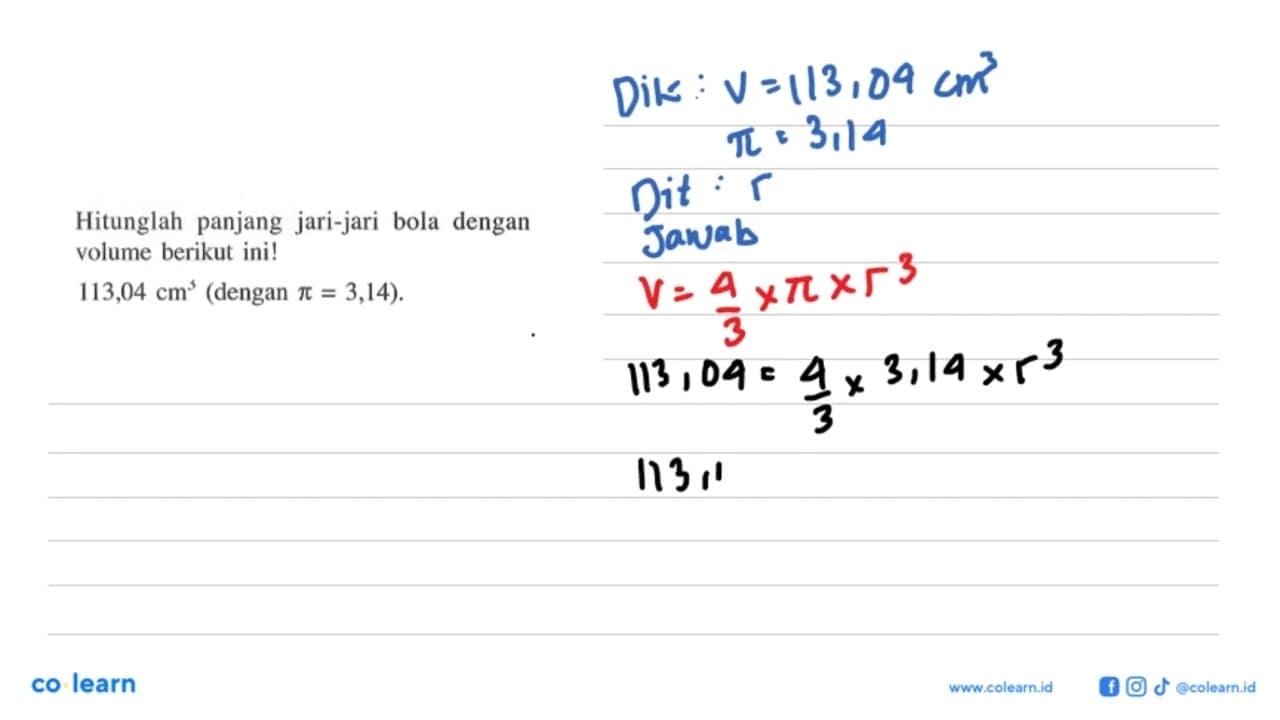 Hitunglah panjang jari-jari bola dengan
volume berikut ini!
113,04 cm³ (dengan π = 3,14).
Dik : V = 113,04 cm³
π = 3,14
Dit : r
Jawab
V = 4/3 × π × r³
113,04 = 4/3 × 3,14 × r³
113,1
co learn
www.colearn.id
@colearn.id